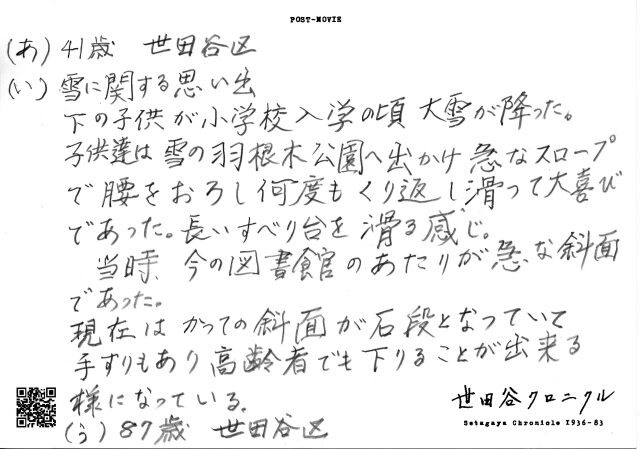 POST-MOVIE
(あ) 41歳 世田谷区
(い) 雪に関する思い出
下の子供が小学校入学の頃 大雪が降った。
子供達は雪の羽根木公園へ出かけ 急なスロープ
で腰をおろし何度もくり返し滑って大喜び
であった。長いすべり台を滑る感じ。
当時、今の図書館のあたりが急な斜面
であった。
現在はかつての斜面が石段となっていて
手すりもあり高齢者でも下りることが出来る
様になっている。
(う) 87歳 世田谷区
世田谷クロニクル
Setagaya Chronicle 1936-83